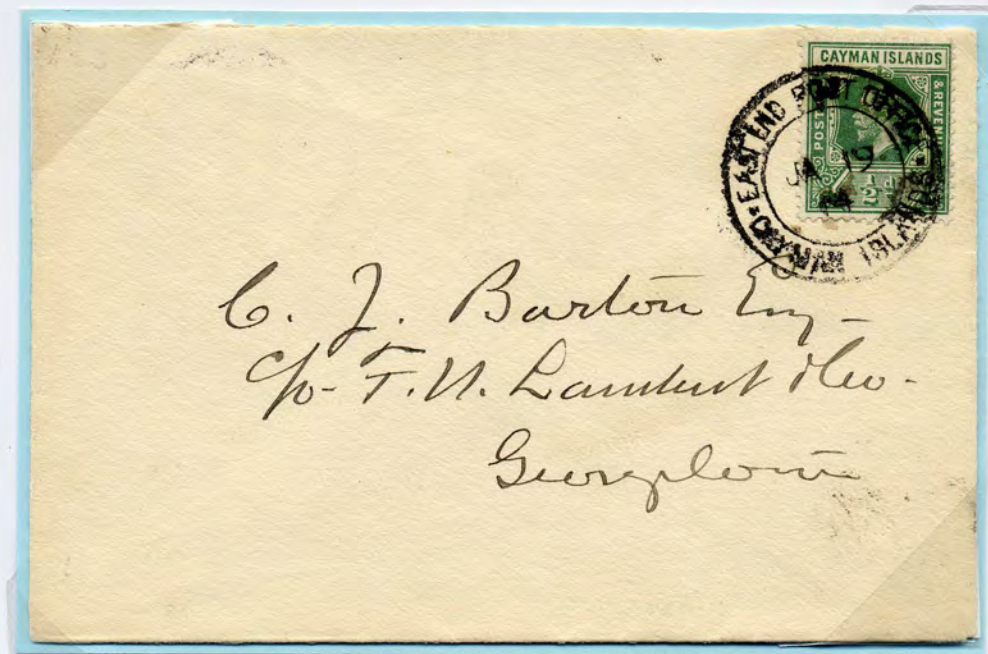 CAYMAN ISLANDS
POST
& REVENU
½ d
EAST END POST OFFICE
JA 19
14
ISLANDS
C. J. Barton Esq-
c/o- F. N. Lambert
Georgetown